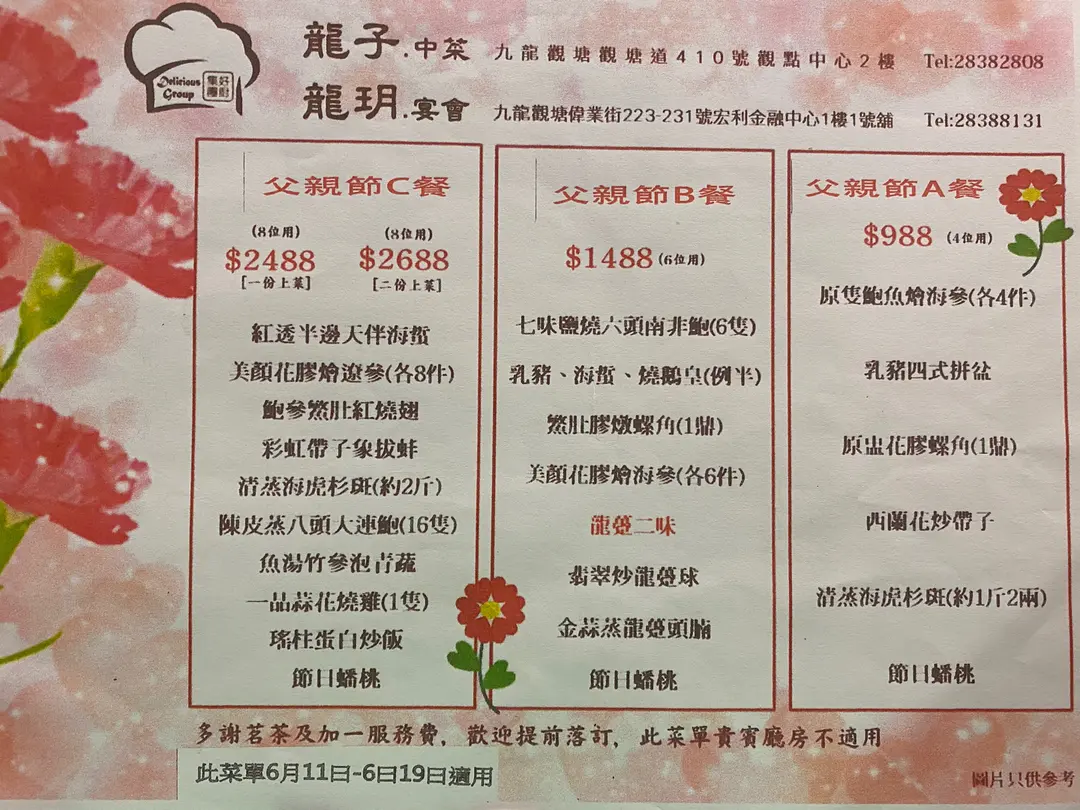 Delicious Group 集好團財
龍子.中菜 九龍觀塘觀塘道410號觀點中心2樓 Tel:28382808
龍玥.宴會 九龍觀塘偉業街223-231號宏利金融中心1樓1號舖 Tel:28388131
父親節C餐
(8位用) (8位用)
$2488 $2688
[一份上菜] [二份上菜]
紅透半邊天伴海蜇
美顏花膠燴遼參(各8件)
鮑參鱉肚紅燒翅
彩虹帶子象拔蚌
清蒸海虎杉斑(約2斤)
陳皮蒸八頭大連鮑(16隻)
魚湯竹參泡青蔬
一品蒜花燒雞(1隻)
瑤柱蛋白炒飯
節日蟠桃
父親節B餐
$1488 (6位用)
七味鹽燒六頭南非鮑(6隻)
乳豬、海蜇、燒鵝皇(例半)
鱉肚膠燉螺角(1鼎)
美顏花膠燴海參(各6件)
龍躉二味
翡翠炒龍躉球
金蒜蒸龍躉頭腩
節日蟠桃
父親節A餐
$988 (4位用)
原隻鮑魚燴海參(各4件)
乳豬四式拼盆
原盅花膠螺角(1鼎)
西蘭花炒帶子
清蒸海虎杉斑(約1斤2兩)
節日蟠桃
多謝茗茶及加一服務費, 歡迎提前落訂, 此菜單貴賓廳房不適用
此菜單6月11日-6日19日適用
圖片只供參考